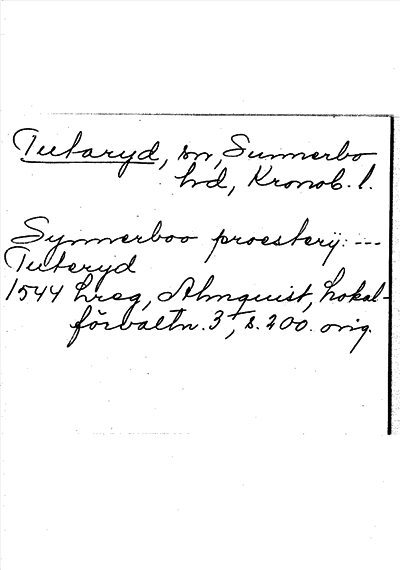 Tutaryd, sn, Sunnerbo
hd, Kronob. l.
Synnerboo proesterij: ---
Tuteryd
1544 hreg, Almquist, Lokal-
förvaltn. 3, s. 200. orig.